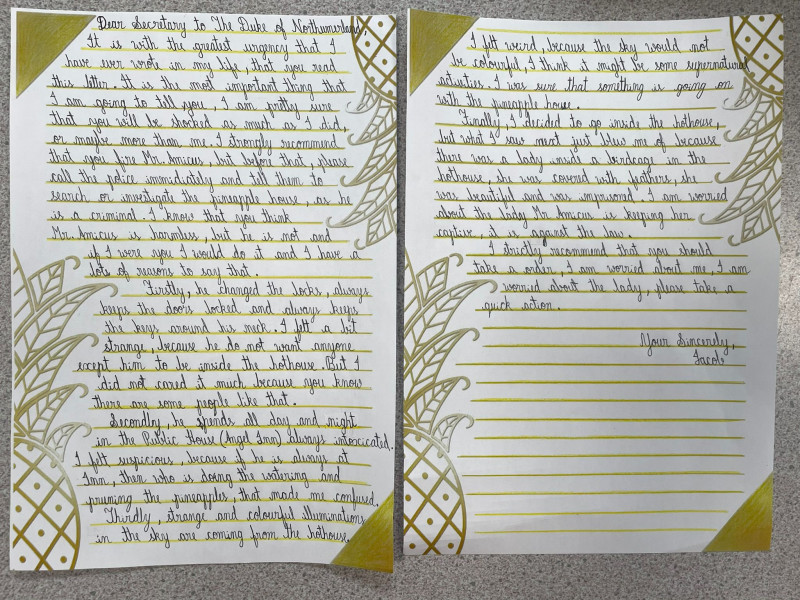 Dear Secretary to The Duke of Northumerland,
It is with the greatest urgency that I
have ever wrote in my life, that you read
this letter. It is the most important thing that
I am going to tell you. I am pretty sure
that you will be shocked as much as I did,
or maybe more than me. I strongly recommend
that you fire Mr. Amicus, but before that, please
call the police immediately and tell them to
search or investigate the pineapple house, as he
is a criminal. I know that you think
Mr. Amicus is harmless, but he is not and
if I were you I would do it and I have a
lots of reasons to say that.
Firstly, he changed the locks, always
keeps the doors locked and always keeps
the keys around his neck. I felt a bit
strange, because he do not want anyone
except him to be inside the hothouse. But I
did not cared it much because you know
there are some people like that.
Secondly, he spends all day and night
in the Public House (Angel Inn) always intoxicated.
I felt suspicious, because if he is always at
Inn, then who is doing the watering and
pruning the pineapples, that made me confused.
Thirdly, strange and colourful illuminations
in the sky are coming from the hothouse.
I felt weird, because the sky would not
be colourful, I think it might be some supernatural
activities. I was sure that something is going on
with the pineapple house.
Finally, I decided to go inside the hothouse,
but what I saw next just blew me of because
there was a lady inside a birdcage in the
hothouse, she was covered with feathers, she
was beautiful and was imprisoned. I am worried
about the lady Mr. Amicus is keeping her
captive, it is against the law.
I strictly recommend that you should
take a order, I am worried about me, I am
worried about the lady, please take a
quick action.
Your Sincerely,
Jacob